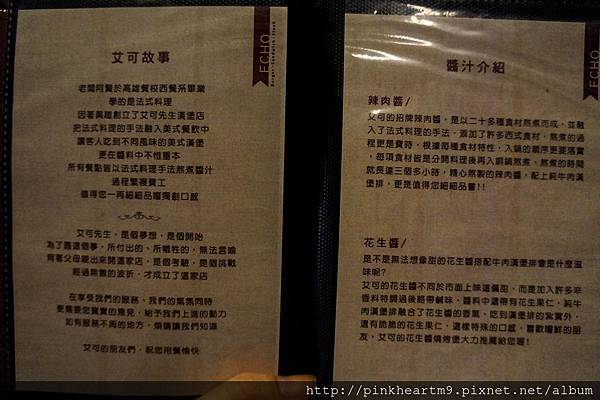 艾可故事
ECHO
老闆阿賢於高雄餐校西餐系畢業
學的是法式料理
因著興趣創立了艾可先生漢堡店
把法式料理的手法融入美式餐飲中
讓客人吃到不同風味的美式漢堡
更在醬料中不惜重本
所有餐點皆以法式料理手法熬煮醬汁
過程繁複費工
值得您一再細細品嚐獨創口感
艾可先生，是個夢想，是個開始
為了圓這個夢，所付出的、所犧牲的，無法言喻
有著父母親出來開這家店，是個考驗，是個挑戰
經過無數的波折，才成立了這家店
在享受我們的服務，我們的氣氛同時
更需要您寶貴的意見，給予我們上進的動力
如有服務不周的地方，煩請讓我們知道
艾可的朋友們，祝您用餐愉快
醬汁介紹
ECHO
辣肉醬/
艾可的招牌辣肉醬，是以二十多種食材熬煮而成，並融
入了法式料理的手法，添加了許多西式食材，熬煮的過
程更是費時，根據每種食材特性，入鍋的順序更要落實
，每項食材皆是分開料理後再入鍋熬煮，熬煮的時間
就長達三個多小時，精心熬製的辣肉醬，配上純牛肉漢
堡排，更是值得您細細品嘗!!
花生醬/
是不是無法想像甜的花生醬搭配牛肉漢堡排會是什麼滋
味呢?
艾可的花生醬不同於市面上味道偏甜，而是加入許多辛
香料特調過後略帶鹹味，醬料中還帶有花生果仁，純牛
肉漢堡排融合了花生醬的香氣，吃到漢堡排的紮實外，
還有脆脆的花生果仁，這樣特殊的口感，喜歡嚐鮮的朋
友，艾可的花生醬燒烤堡大力推薦給您喔!
http://pinkheartm9.pixnet.net/album